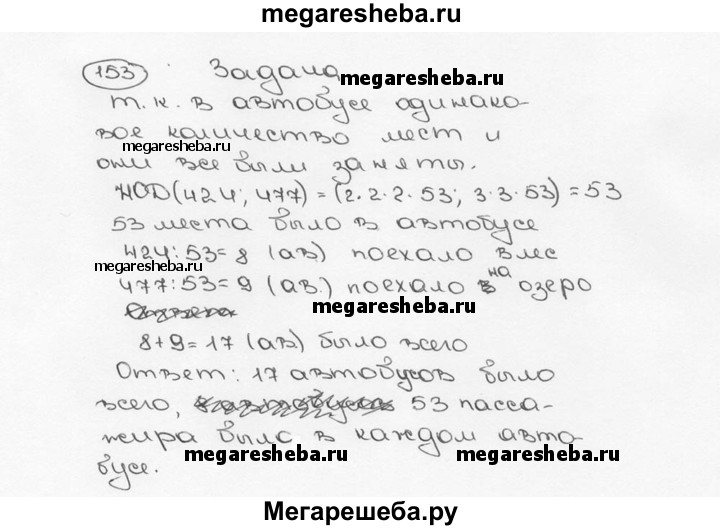 megaresheba.ru
153 Задача
megaresheba.ru
т.к. в автобусе одинако-
вое количество мест и
megaresheba.ru
они все были заняты.
НОД(424; 477) = (2·2·2·53; 3·3·53) = 53
53 места было в автобусе
424:53=8 (ав) поехало в лес
megaresheba.ru
477:53=9 (ав.) поехало на озеро
megaresheba.ru
8+9=17 (ав) было всего
Ответ: 17 автобусов было
всего, 53 пасса-
жира было в каждом авто-
бусе.
megaresheba.ru megaresheba.ru
Мегарешеба.ру